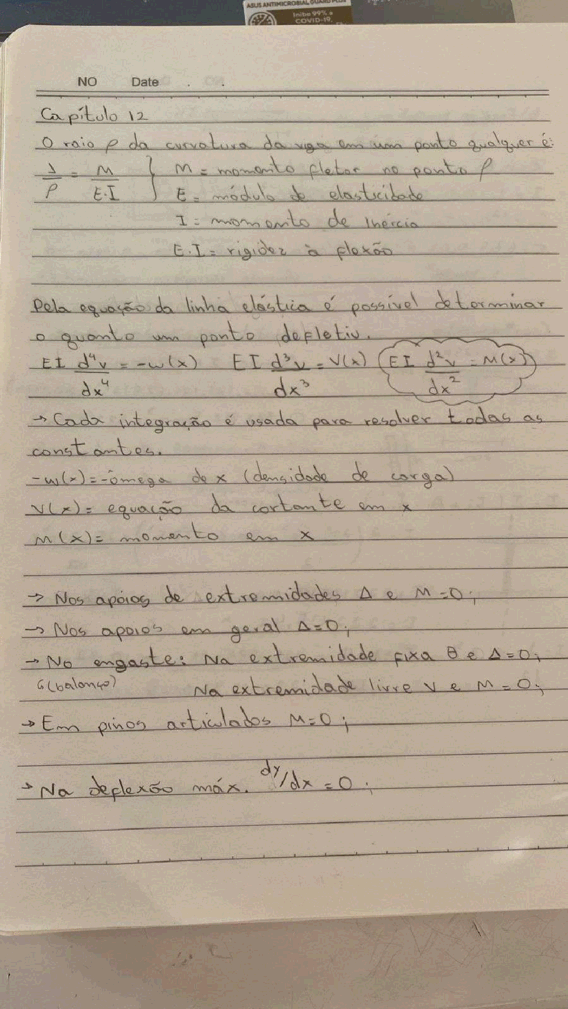 ASUS ANTIMICROBIAL GUARD PLUS
Inibe 99% a
COVID-19,
NO Date . .
Capítulo 12
O raio ρ da curvatura da viga em um ponto qualquer é:
1/ρ = M/E.I } M = momento fletor no ponto ρ
E = módulo de elasticidade
I = momento de Inércia
E.I = rigidez à flexão
Pela equação da linha elástica é possível determinar
o quanto um ponto defletiu.
EI d⁴v/dx⁴ = -w(x) EI d³v/dx³ = V(x) (EI d²v/dx² = M(x))
→ Cada integração é usada para resolver todas as
constantes.
-w(x) = -ômega de x (densidade de carga)
V(x) = equação da cortante em x
M(x) = momento em x
→ Nos apoios de extremidades Δ e M = 0;
→ Nos apoios em geral Δ = 0;
→ No engaste: Na extremidade fixa θ e Δ = 0;
(balanço) Na extremidade livre V e M = 0;
→ Em pinos articulados M = 0;
→ Na deflexão máx. dy/dx = 0;